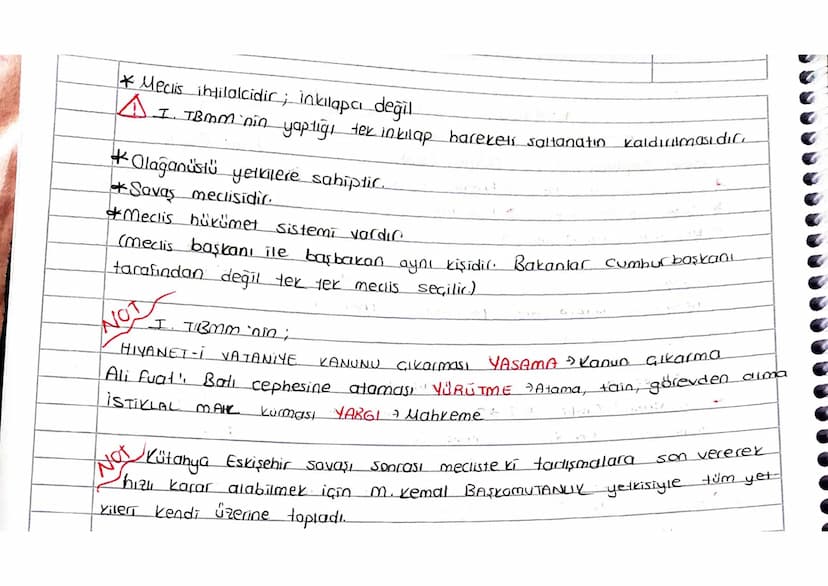 * Meclis ihtilalcidir; inkılapçı değil
⚠ I. TBmm'nin yaptığı tek inkılap hareketi saltanatın kaldırılmasıdır.
* Olağanüstü yetkilere sahiptir.
* Savaş meclisidir.
* Meclis hükümet sistemi vardır.
(meclis başkanı ile başbakan aynı kişidir. Bakanlar cumhurbaşkanı
tarafından değil tek tek meclis seçilir)
NOT
I. TBmm'nin;
HIYANET-İ VATANİYE KANUNU çıkarması YASAMA → Kanun çıkarma
Ali Fuat'ı Batı cephesine ataması YÜRÜTME → Atama, tain, görevden alma
İSTİKLAL MAHK kurması YARGI → Mahkeme
NOT Kütahya Eskişehir savaşı sonrası meclisteki tartışmalara son vererek
hızlı karar alabilmek için m. Kemal BAŞKOMUTANLIK yetkisiyle tüm yet-
kileri kendi üzerine topladı.